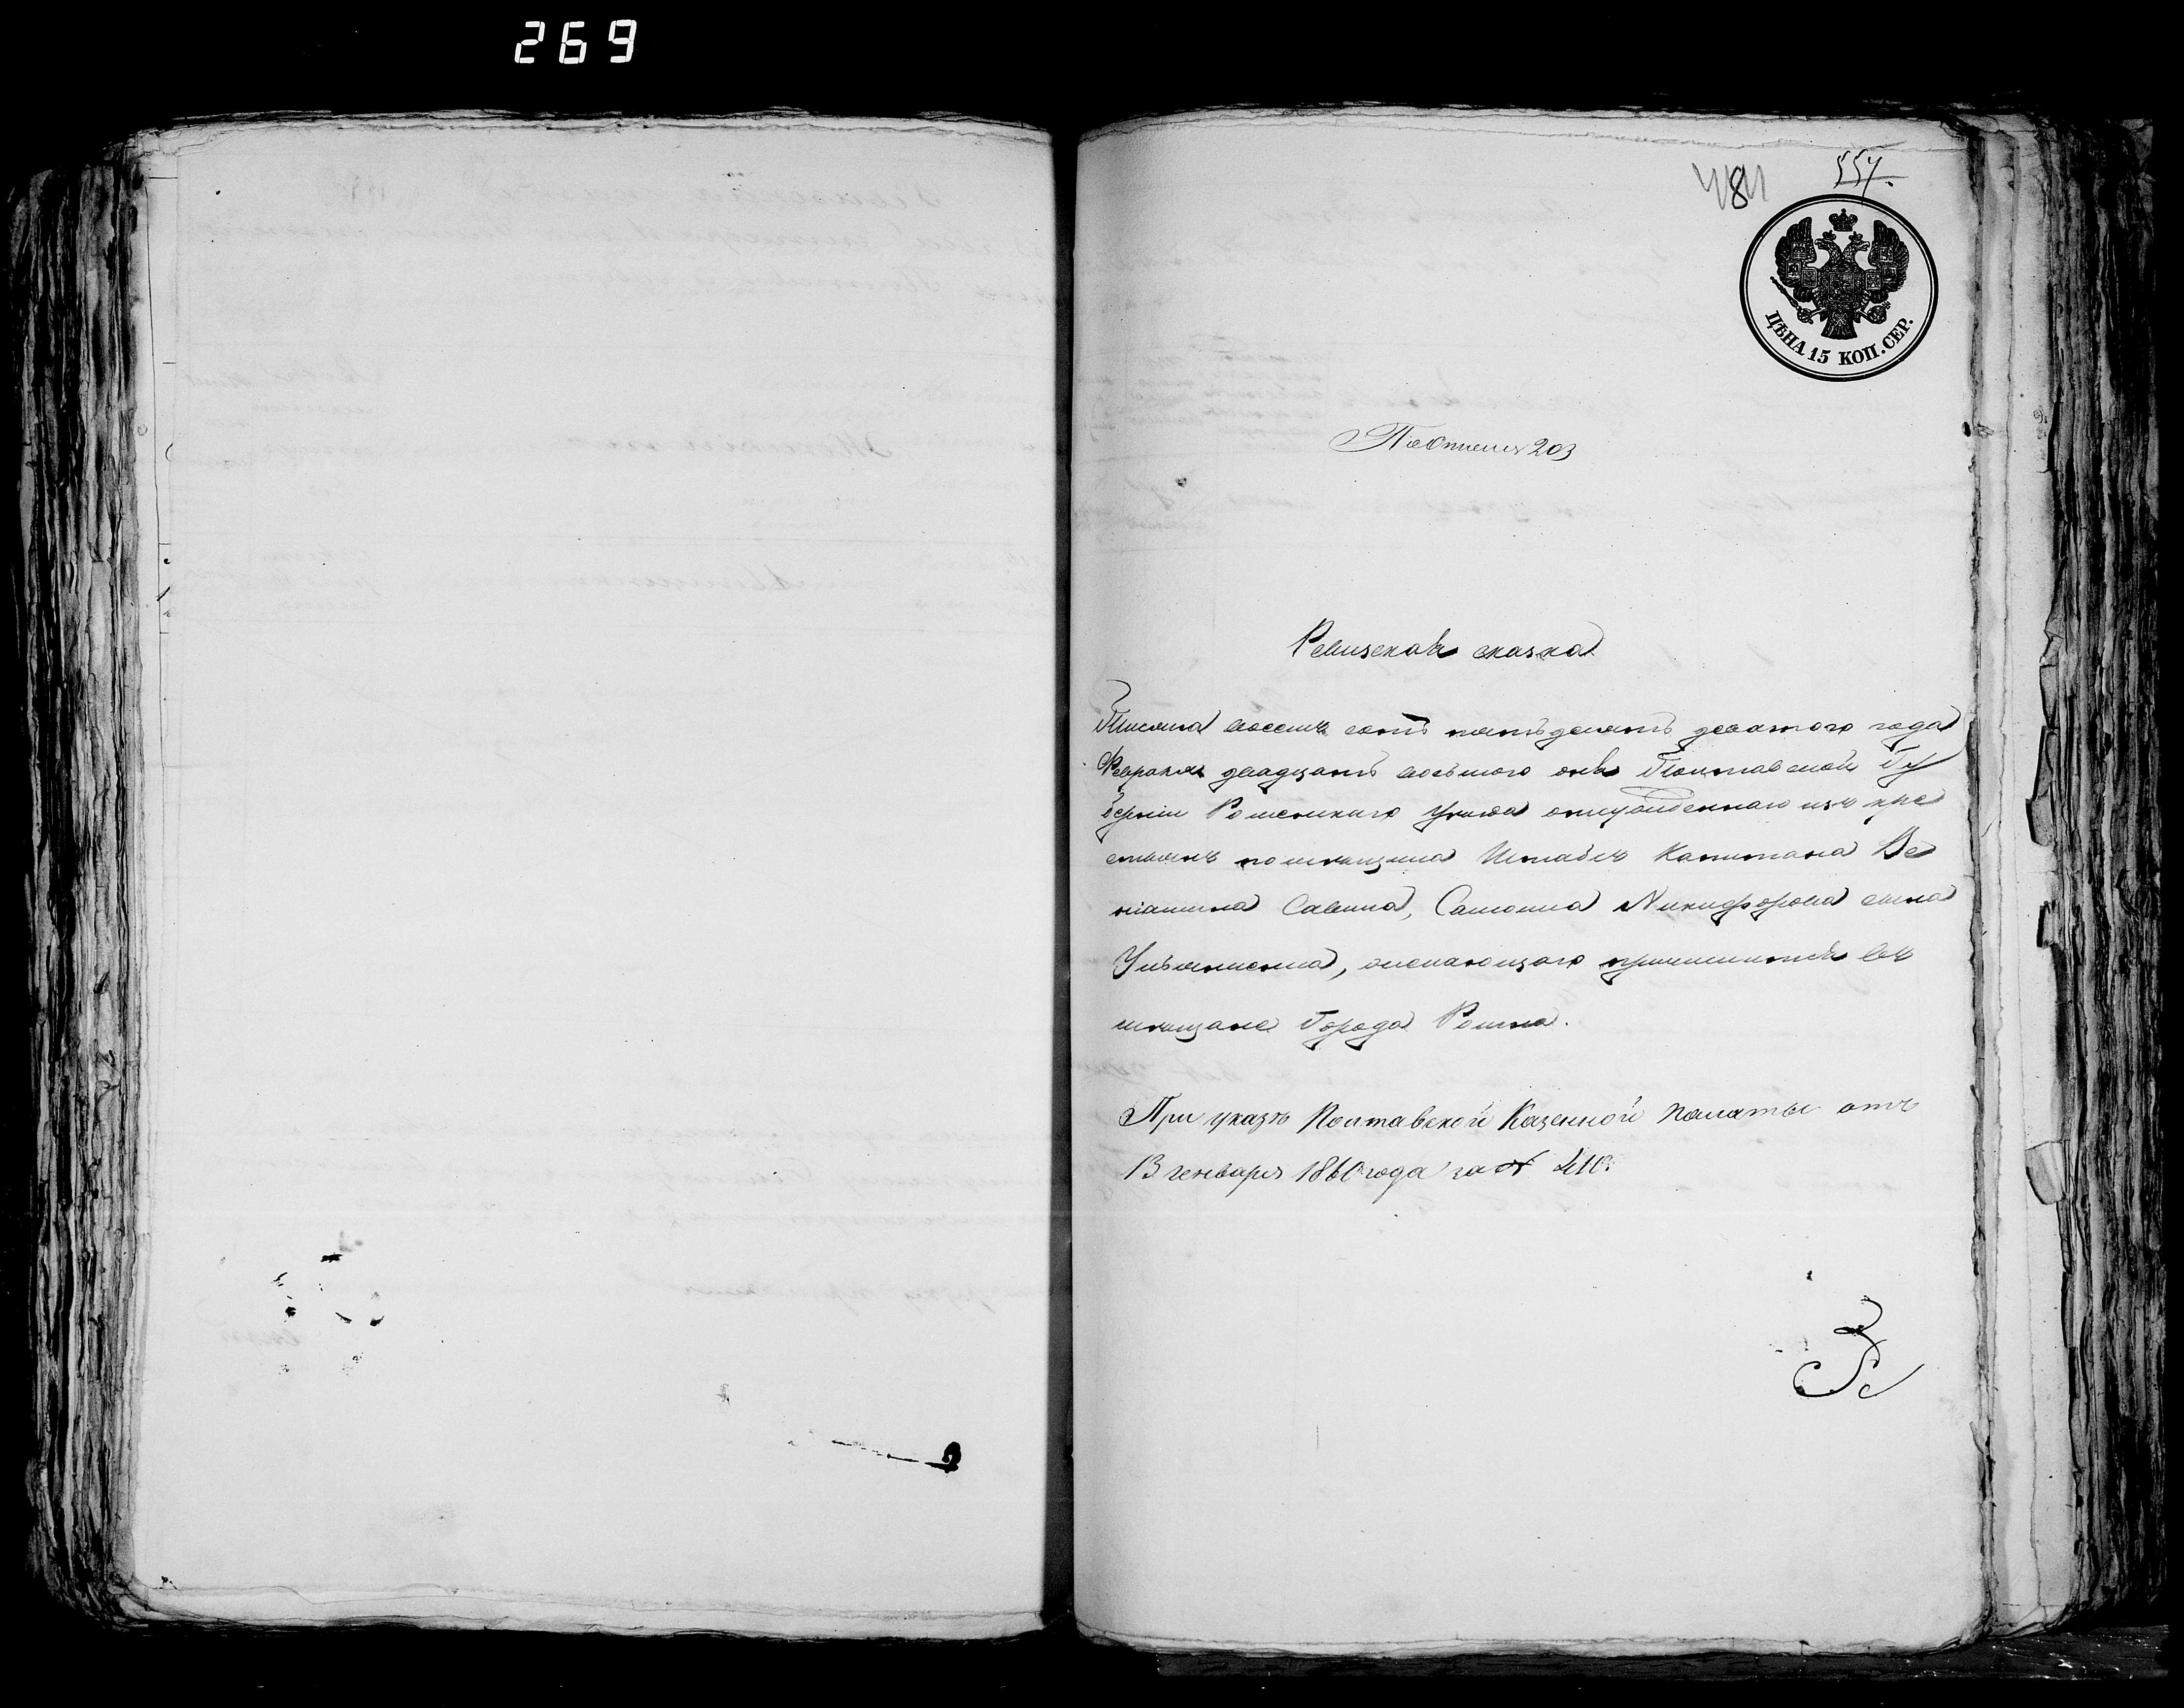 269
481
557.
ЦѢНА 15 КОП. СЕР.
203
Ревизская сказка
Тысяча восемь сотъ пятьдесятъ девятого года
Февраля двадцать восьмого дня Полтавской Гу
берніи Роменскаго Уѣзда отпущеннаго изъ кре
стьянъ помѣщика Штабсъ Капитана Ве
ніамина Савича, Самойла Никифорова сына
Ульяненка, желающаго причислится въ
мѣщане Города Ромна.
При указѣ Полтавской Казенной палаты отъ
13 генваря 1860 года за № 210.